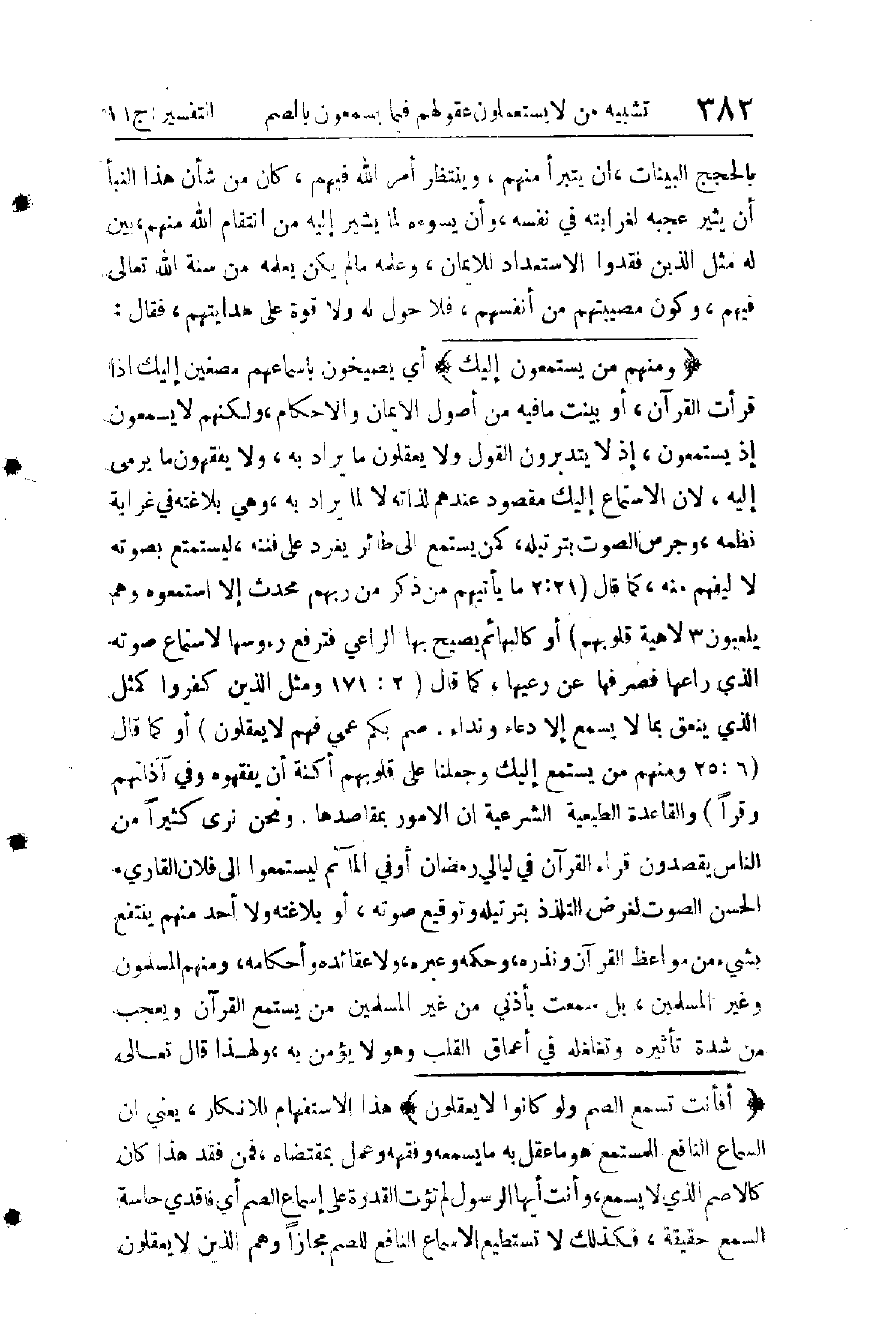 ٣٨٢ تشبيه من لا يستعملون عقولهم فيما يسمعون بالصم التفسير : ج ١١
بالحجج البينات ، ان يتبرأ منهم ، وينتظر أمر الله فيهم ، كان من شأن هذا النبأ
أن يثير عجبه لغرابته في نفسه ، وأن يسوءه لما يشير إليه من انتقام الله منهم ، بين
له مثل الذين فقدوا الاستعداد للايمان ، وعلمه مالم يكن يعلمه من سنة الله تعالى
فيهم ، وكون مصيبتهم من أنفسهم ، فلا حول له ولا قوة على هدايتهم ، فقال :
﴿ ومنهم من يستمعون إليك ﴾ أي يصيخون بأسماعهم مصغين إليك اذا
قرأت القرآن ، أو بينت مافيه من أصول الايمان والاحكام ، ولكنهم لا يسمعون
إذ يستمعون ، إذ لا يتدبرون القول ولا يعقلون ما يراد به ، ولا يفقهون ما يرمى
إليه ، لان الاستماع إليك مقصود عندهم لذاته لا لما يراد به ، وهي بلاغته في غرابة
نظمه ، وجرس الصوت بترتيله ، كمن يستمع الى طائر يغرد على فننه ، ليستمتع بصوته
لا ليفهم منه ، كما قال (٢:٢١ ما يأتيهم من ذكر من ربهم محدث إلا استمعوه وهم
يلعبون ٣ لاهية قلوبهم) أو كالبهائم يصيح بها الراعي فترفع رءوسها لاستماع صوته
الذي راعها فصرفها عن رعيها ، كما قال ( ٢ : ١٧١ ومثل الذين كفروا كمثل
الذي ينعق بما لا يسمع إلا دعاء ونداء . صم بكم عمي فهم لا يعقلون ) أو كما قال
(٦ : ٢٥ ومنهم من يستمع إليك وجعلنا على قلوبهم أكنة أن يفقهوه وفي آذانهم
وقراً ) والقاعدة الطبعية الشرعية ان الامور بمقاصدها . ونحن نرى كثيراً من
الناس يقصدون قراء القرآن في ليالي رمضان أو في المآتم ليستمعوا الى فلان القاريء
الحسن الصوت لغرض التلذذ بترتيله وتوقيع صوته ، أو بلاغته ولا أحد منهم ينتفع
بشيء من مواعظ القرآن ونذره ، وحكمه وعبره ، ولا عقائده وأحكامه ، ومنهم المسلمون
وغير المسلمين ، بل سمعت بأذني من غير المسلمين من يستمع القرآن ويعجب
من شدة تأثيره وتغلغله في أعماق القلب وهو لا يؤمن به ، ولهـذا قال تعـالى
﴿ أفأنت تسمع الصم ولو كانوا لا يعقلون ﴾ هذا الاستفهام للانكار ، يعني ان
السماع النافع للمستمع هو ما عقل به ما يسمعه وفقهه وعمل بمقتضاه ، فمن فقد هذا كان
كالاصم الذي لا يسمع ، وأنت أيها الرسول لم تؤت القدرة على إسماع الصم أي فاقدي حاسة
السمع حقيقة ، فكذلك لا تستطيع الاسماع النافع للصم مجازاً وهم الذين لا يعقلون